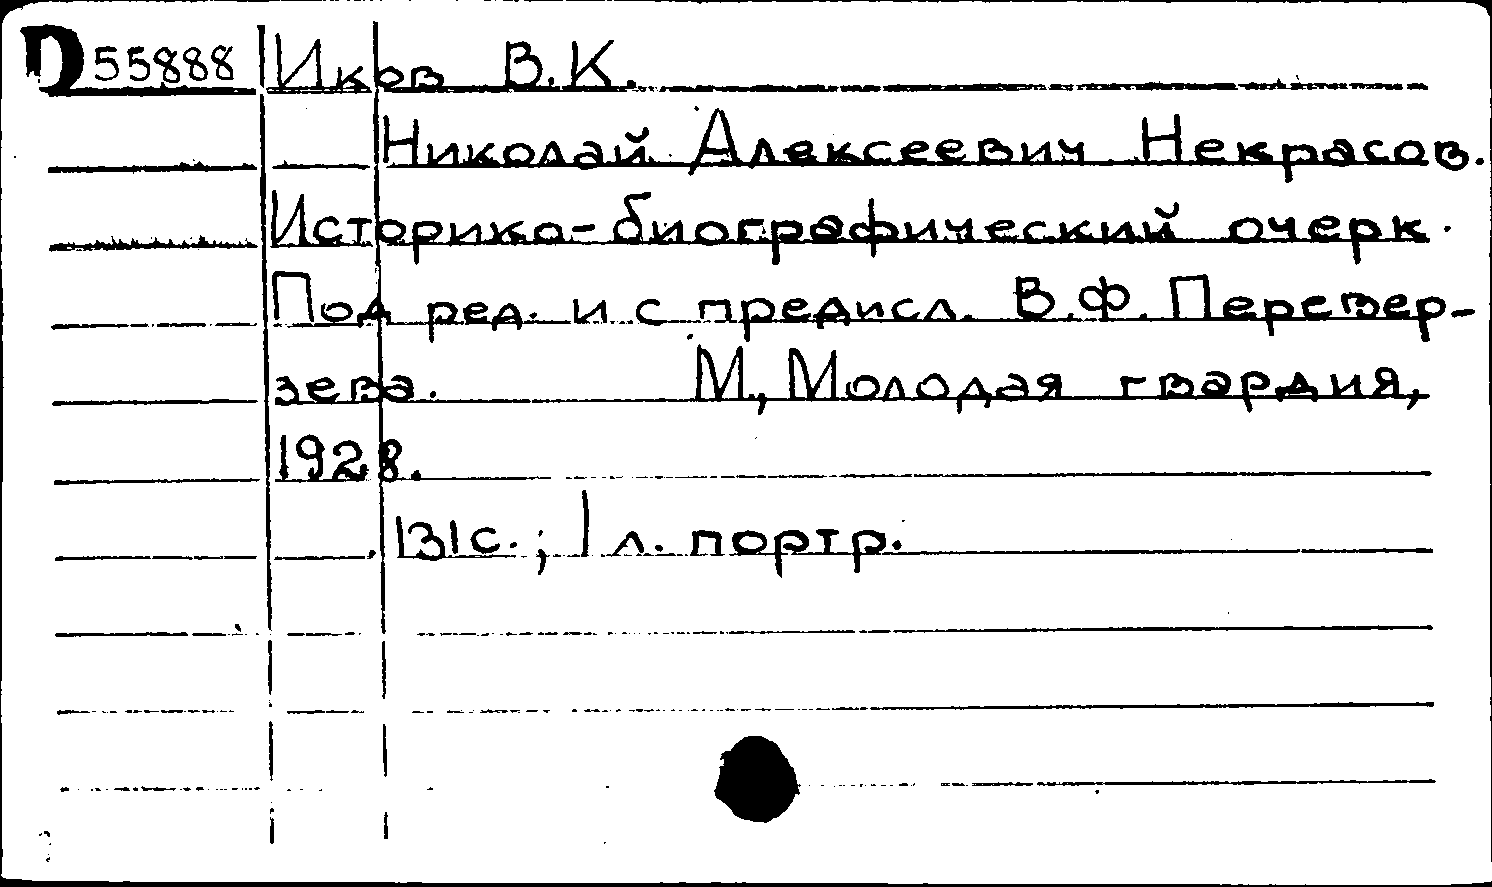 D 55888 Иков В.К.
Николай Алексеевич Некрасов.
Историко-биографический очерк.
Под ред. и с предисл. В.Ф. Перевер-
зева. М., Молодая гвардия,
1928.
131с.; 1 л. портр.